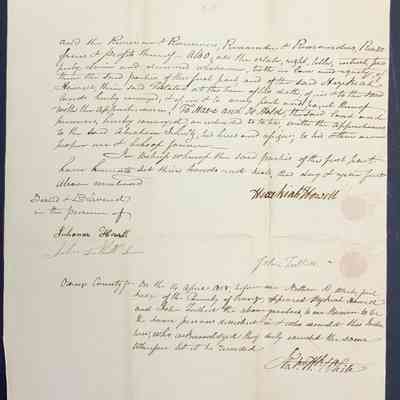 and the Reversion & Reversions, Remainder & Remainders, Rents
Issues & Profits thereof - Also, all the estate, right, title, interest, property
claim and demand whatsoever, both in law and equity, of
them the said parties of the first part and of the said Hezekiah
Howell, their said Testator at the time of his death, of, in & to the said
lands hereby conveyed, & of, in & to every part and parcel thereof
with the Appurtenances, To Have and to Hold, the said land and
premises, hereby conveyed or intended so to be, with the Appurtenances
to the said Abraham Schultz, his heirs and assigns; to his & their own
proper use & behoof forever.
In testimony whereof the said parties of the first part
have hereunto set their hands and seals, the day & year first
above mentioned
Hezekiah Howell
Sealed & Delivered
in the presence of
Howell
John Tuthill
John Tuthill
Orange County ss On the 14 April 1818, before me Nathan H. White first
Judge of the County of Orange, appeared Hezekiah Howell
and John Tuthill the above grantors, to me known to be
the same persons described in & who executed this Indenture;
who acknowledged they duly executed the same
therefore let it be recorded
Nat. H. White